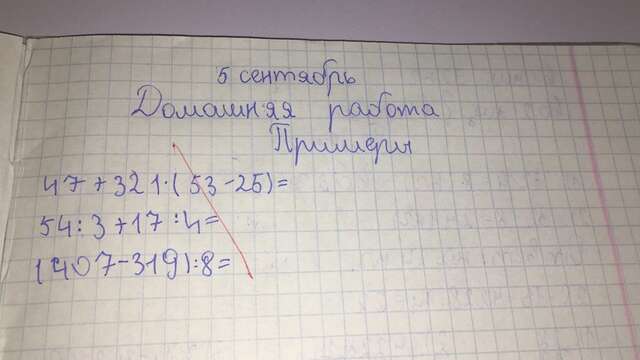 5 сентябрь
Домашняя работа
Примеры
47+321·(53-25)=
54:3+17:4=
(407-319):8=